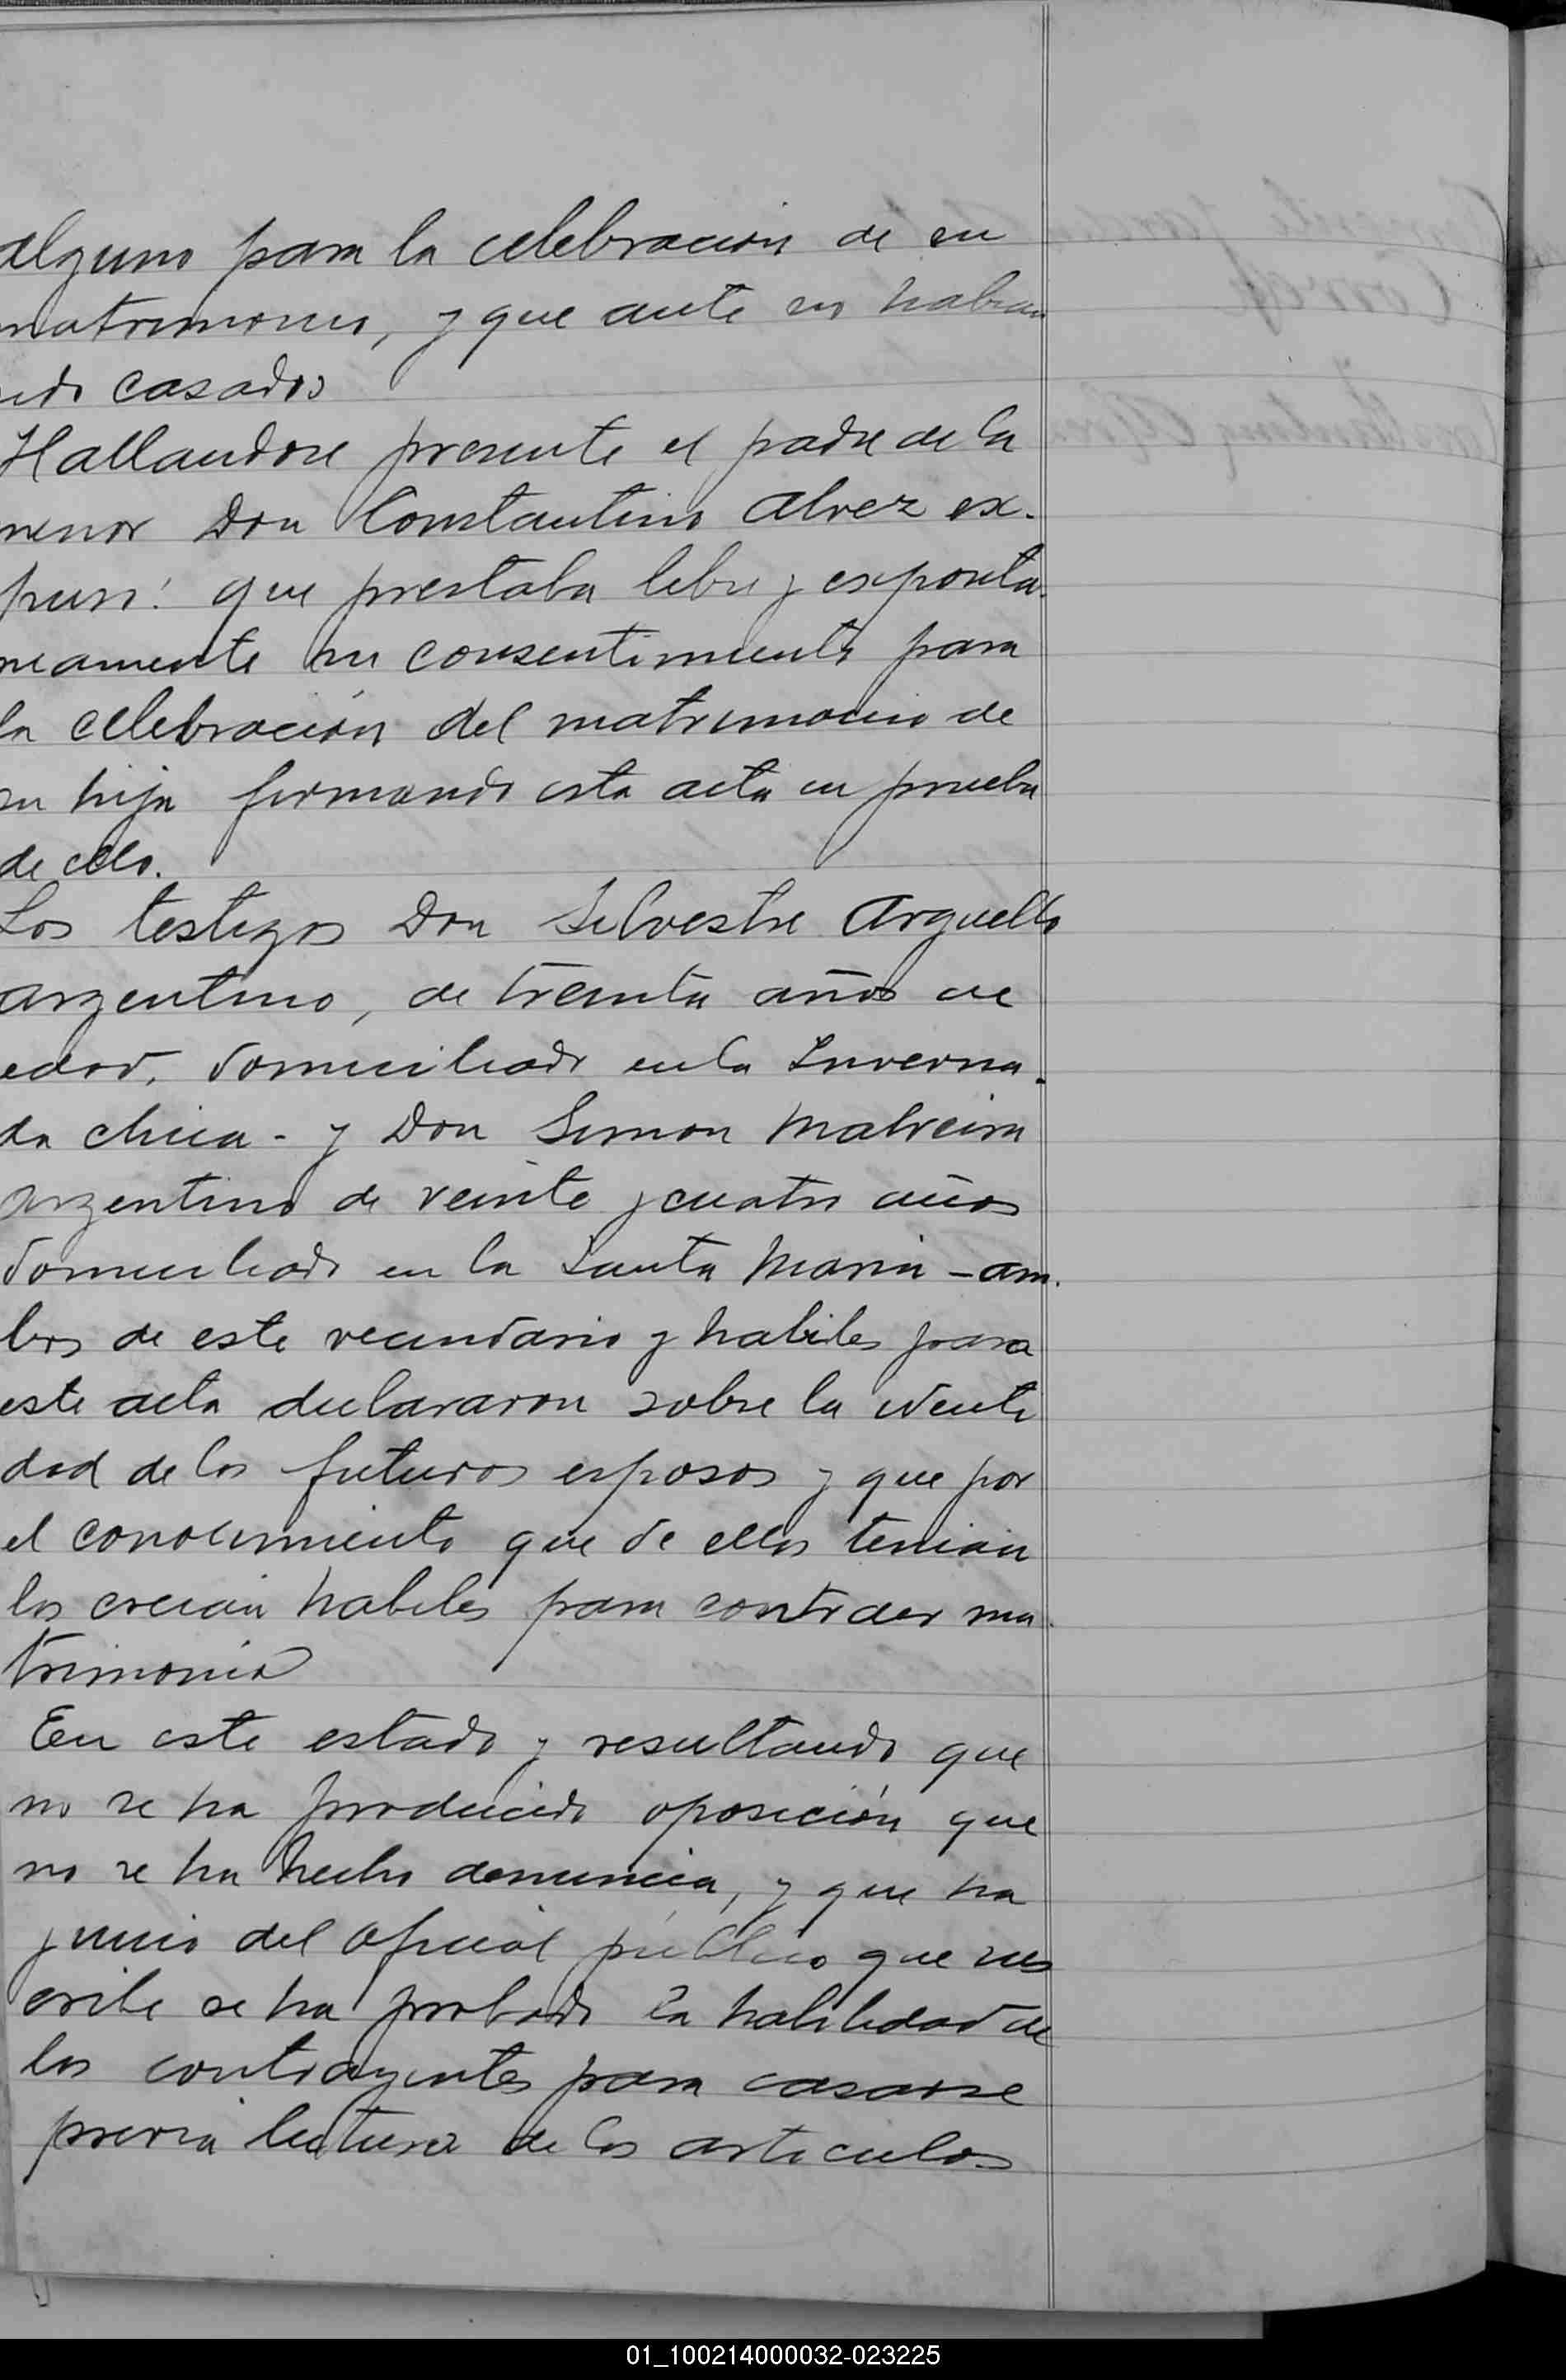 alguno para la celebración de su
matrimonio, y que ante no habian
sido casados
Hallandose presente el padre de la
menor Don Constantino Alvez ex-
puso: que prestaba libre y esponta-
neamente su consentimiento para
la celebración del matrimonio de
su hija firmando esta acta en prueba
de ello.
Los testigos Don Silvestre Arguello
argentino, de treinta años de
edad, domiciliado en la Inverna-
da chica - y Don Simon Malveira
argentino de veinte y cuatro años
domiciliado en la Santa Maria - am-
bos de este vecindario y habiles para
este acta declararon sobre la identi
dad de los futuros esposos y que por
el conocimiento que de ellos tenian
los creian habiles para contraer ma-
trimonio
En este estado y resultando que
no se ha producido oposición que
no se ha hecho denuncia, y que ha
juicio del oficial público que sus
cribe se ha probado la habilidad de
los contrayentes para casarse
previa lectura de los articulos
01_100214000032-023225